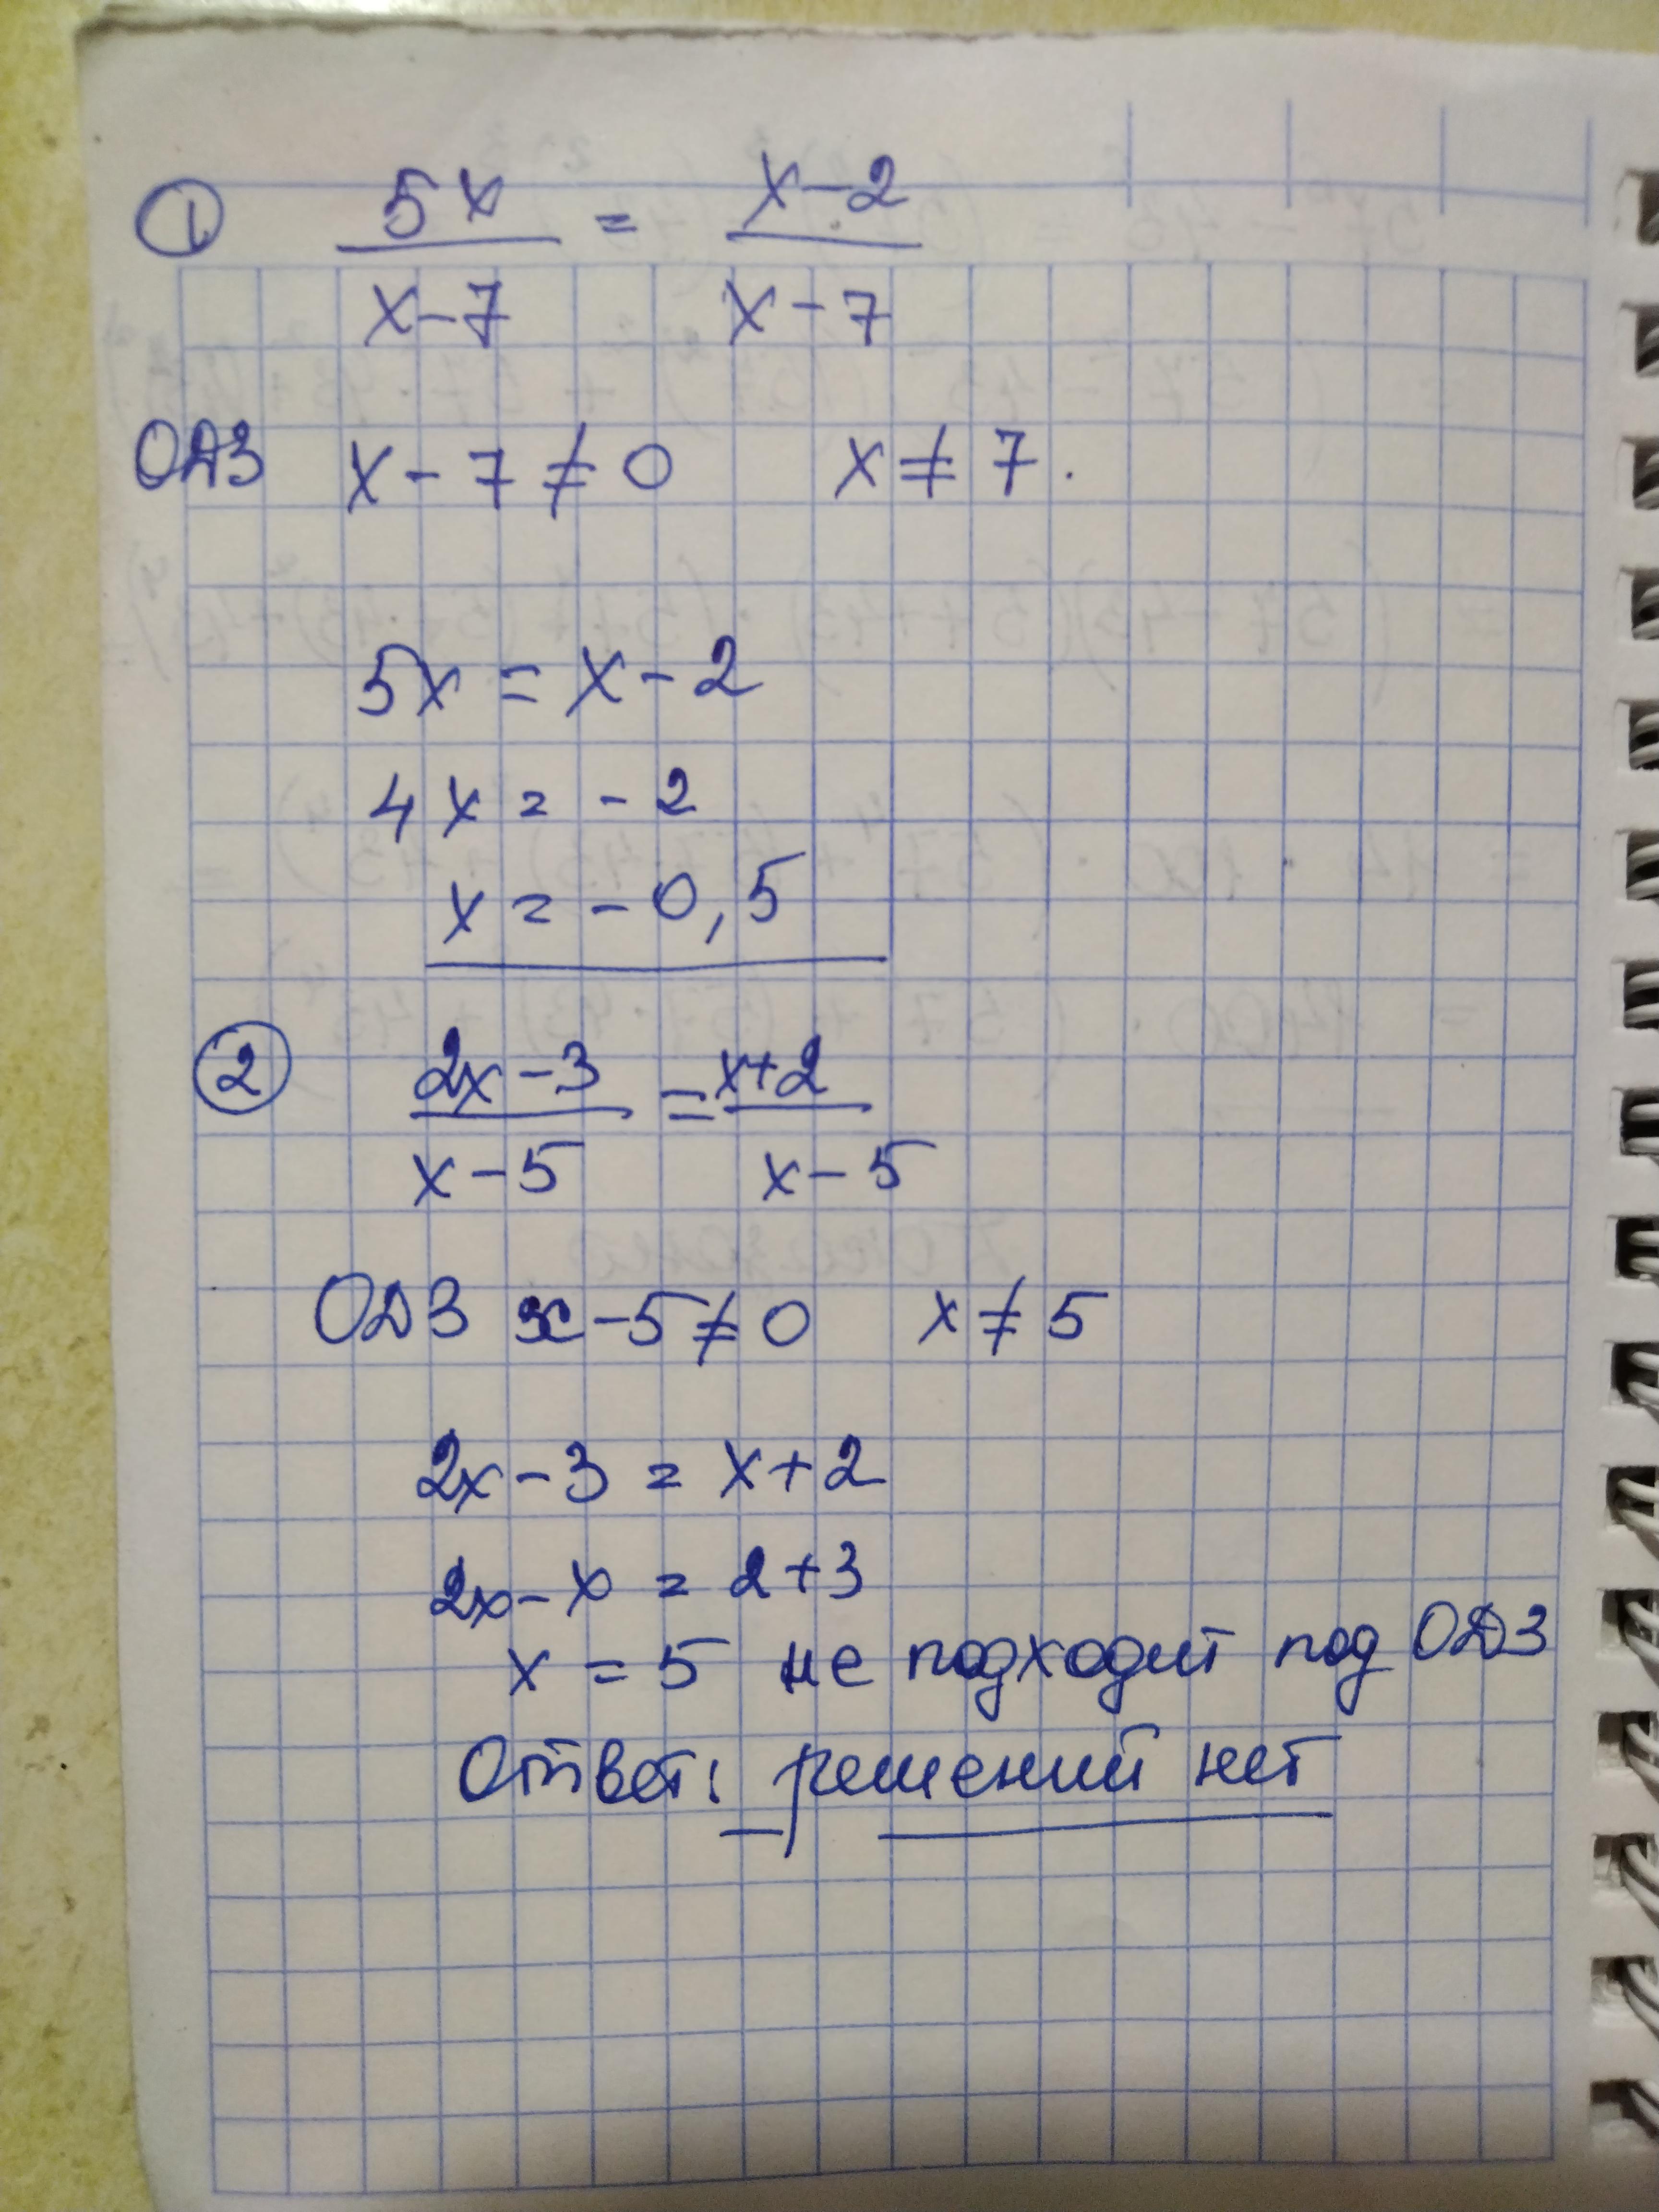 1 5x/(x-7) = (x-2)/(x-7)
ОДЗ x-7≠0 x≠7.
5x = x-2
4x = -2
x = -0,5
2 (2x-3)/(x-5) = (x+2)/(x-5)
ОДЗ x-5≠0 x≠5
2x-3 = x+2
2x-x = 2+3
x = 5 не подходит под ОДЗ
Ответ: решений нет